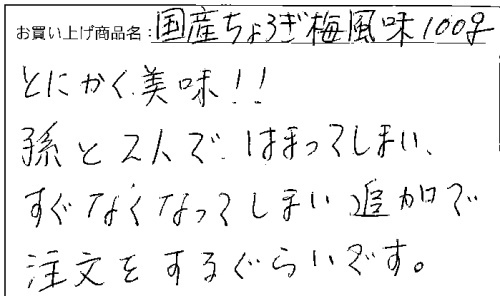 お買い上げ商品名：国産ちょろぎ梅風味100g
とにかく美味！！
孫と2人で、はまってしまい、
すぐなくなってしまい追加で
注文をするぐらいです。